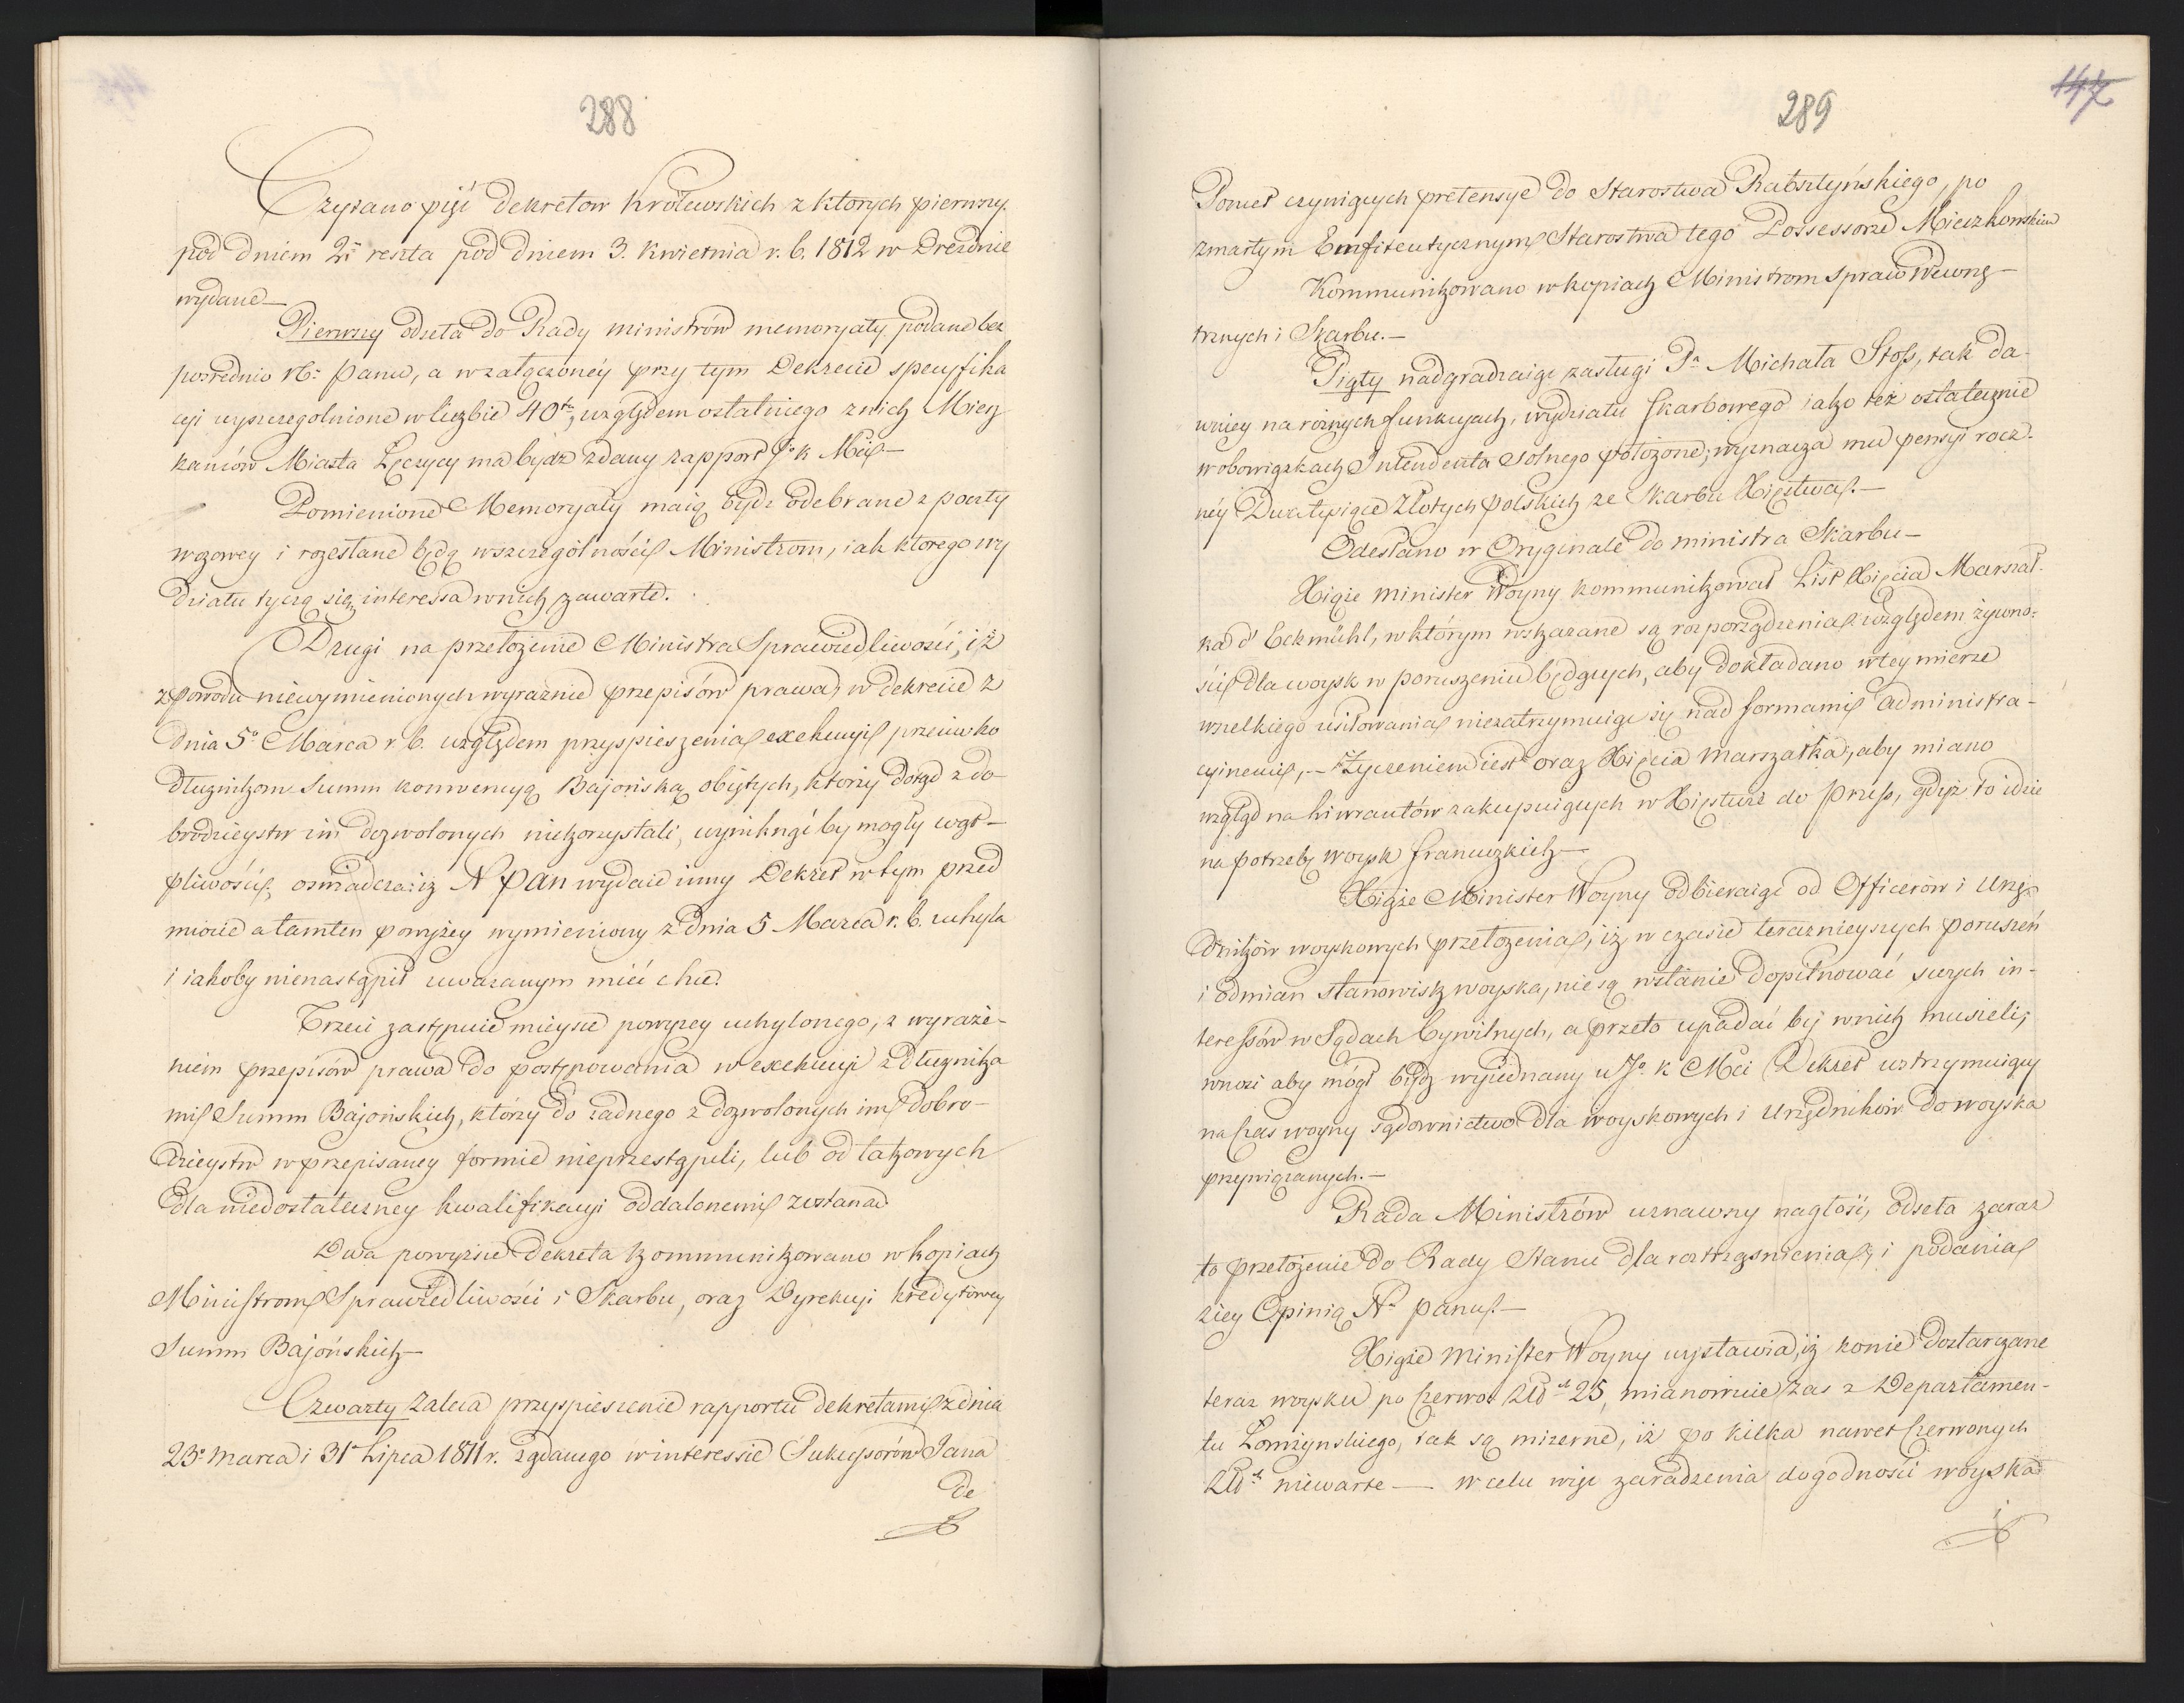 288
Czytano pięć Dekretow Królewskich z ktorych pierwszy
pod dniem 2i reszta pod dniem 3. Kwietnia r. b. 1812 w Dreznie
wydane —
Pierwszy odseła do Rady ministrów memoryały podane bez
pośrednio N: Panu, a w załączonéy przy tym Dekrecie specyfika
cyi wyszczegolnione w liczbie 40tu, względem ostatniego z nich Miesz
kańców Miasta Łęczycy ma bydz zdany rapport J. K Mci —
Pomienione Memoryały maią bydz odebrane z poczty
wozowey i rozesłane będą w szczególności Ministrom, iak ktorego wy
działu tyczą się interessa w nich zawarte.
Drugi na przełożenie Ministra Sprawiedliwości, iż
z powodu niewymienionych wyraźnie przepisów prawa, w dekrecie z
dnia 5o Marca r. b. względem przyspieszenia exekucyi przeciwko
dłużnikom Summ konwencyą Bajońską objętych, którzy dotąd z do-
brodzieystw im dozwolonych niekorzystali, wyniknąć by mogły wąt-
pliwości, oświadcza iż N Pan wydaie inny Dekret w tym przed
miocie a tamten powyżey wymieniony z dnia 5 Marca r. b. uchyla
i iakoby nienastąpił uważanym mieć chce.
Trzeci zastępuie mieysce powyżey uchylonego, z wyraże-
niem przepisów prawa do postępowania w exekucyi z dłużnika
mi Summ Bajońskich, którzy do żadnego z dozwolonych im dobro-
dzieystw w przepisaney formie nieprzestąpili, lub od takowych
dla niedostateczney kwalifikacyi oddalonemi zostaną
Dwa powyższe Dekreta kommunikowano w kopiach
Ministrom Sprawiedliwości i Skarbu, oraz Dyrekcyi kredytowey
Summ Bajońskich —
Czwarty zaleca przyspieszenie rapportu dekretami z dnia
23o Marca i 31o Lipca 1811 r. żądanego w interessie Sukcessorów Jana
de
289
147
Pomet czyniących pretensye do Starostwa Rabsztyńskiego, po
zmarłym Emfiteutycznym Starostwa tego Possessorze Mieczkowskim
Kommunikowano w kopiach Ministrom spraw Wewnę-
trznych i Skarbu. —
Piąty nadgradzaiąc zasługi Pa Michała Stoss, tak da-
wniey na różnych funkcyach, wydziału skarbowego iako też ostatecznie
w obowiązkach Intendenta solnego położone, wyznacza mu pensyi rocz-
néy Dwa tysiące Złotych polskich ze Skarbu Xięstwa. —
Odesłano w Oryginale do ministra Skarbu —
Xiąże minister Woyny kommunikował List Xięcia Marszał-
ka d'Eckmühl, w którym wskazane są rozporządzenia względem żywno-
ści dla woysk w poruszeniu będących, aby dokładano w tey mierze
wszelkiego usiłowania niezatrzymuiąc się nad formami administra-
cyinemi, — Życzeniem iest oraz Xięcia Marszałka, aby miano
wzgląd na liwrantów zakupuiących w Xięstwie do Pruss, gdyż to idzie
na potrzebę woysk francuzkich —
Xiąże Minister Woyny odbieraiąc od Officerów i Urzę-
dników woyskowych przełożenia, iż w czasie teraznieyszych poruszeń
i odmian stanowisk woyska, nie są w stanie dopilnować swych in-
teressów w Sądach Cywilnych, a przeto upadać by w nich musieli,
wnosi aby mógł bydz wyjednany u Jo. K Mci Dekret wstrzymuiący
na czas woyny sądownictwo dla woyskowych i Urzędników do woyska
przywiązanych. —
Rada Ministrów uznawszy nagłość, odseła zaraz
to przełożenie do Rady Stanu dla roztrząśnienia, i podania
z iey Opinią N. Panu. —
Xiąże Minister Woyny wystawia, iż konie dostarczane
teraz woysku po Czerwo: Złt. 25, mianowicie zas z Departamen-
tu Łomżynskiego, tak są mizerne, iż po kilka nawet Czerwonych
Złt. niewarte — w celu więc zaradzenia dogodności woyska
i